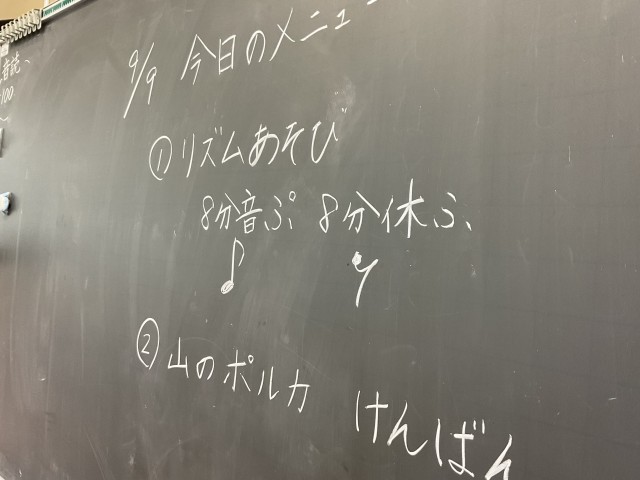 9/9 今日のメニュー
①リズムあそび
8分音ぷ 8分休ふ
♪ 𝄾
②山のポルカ けんばん
音読、
100